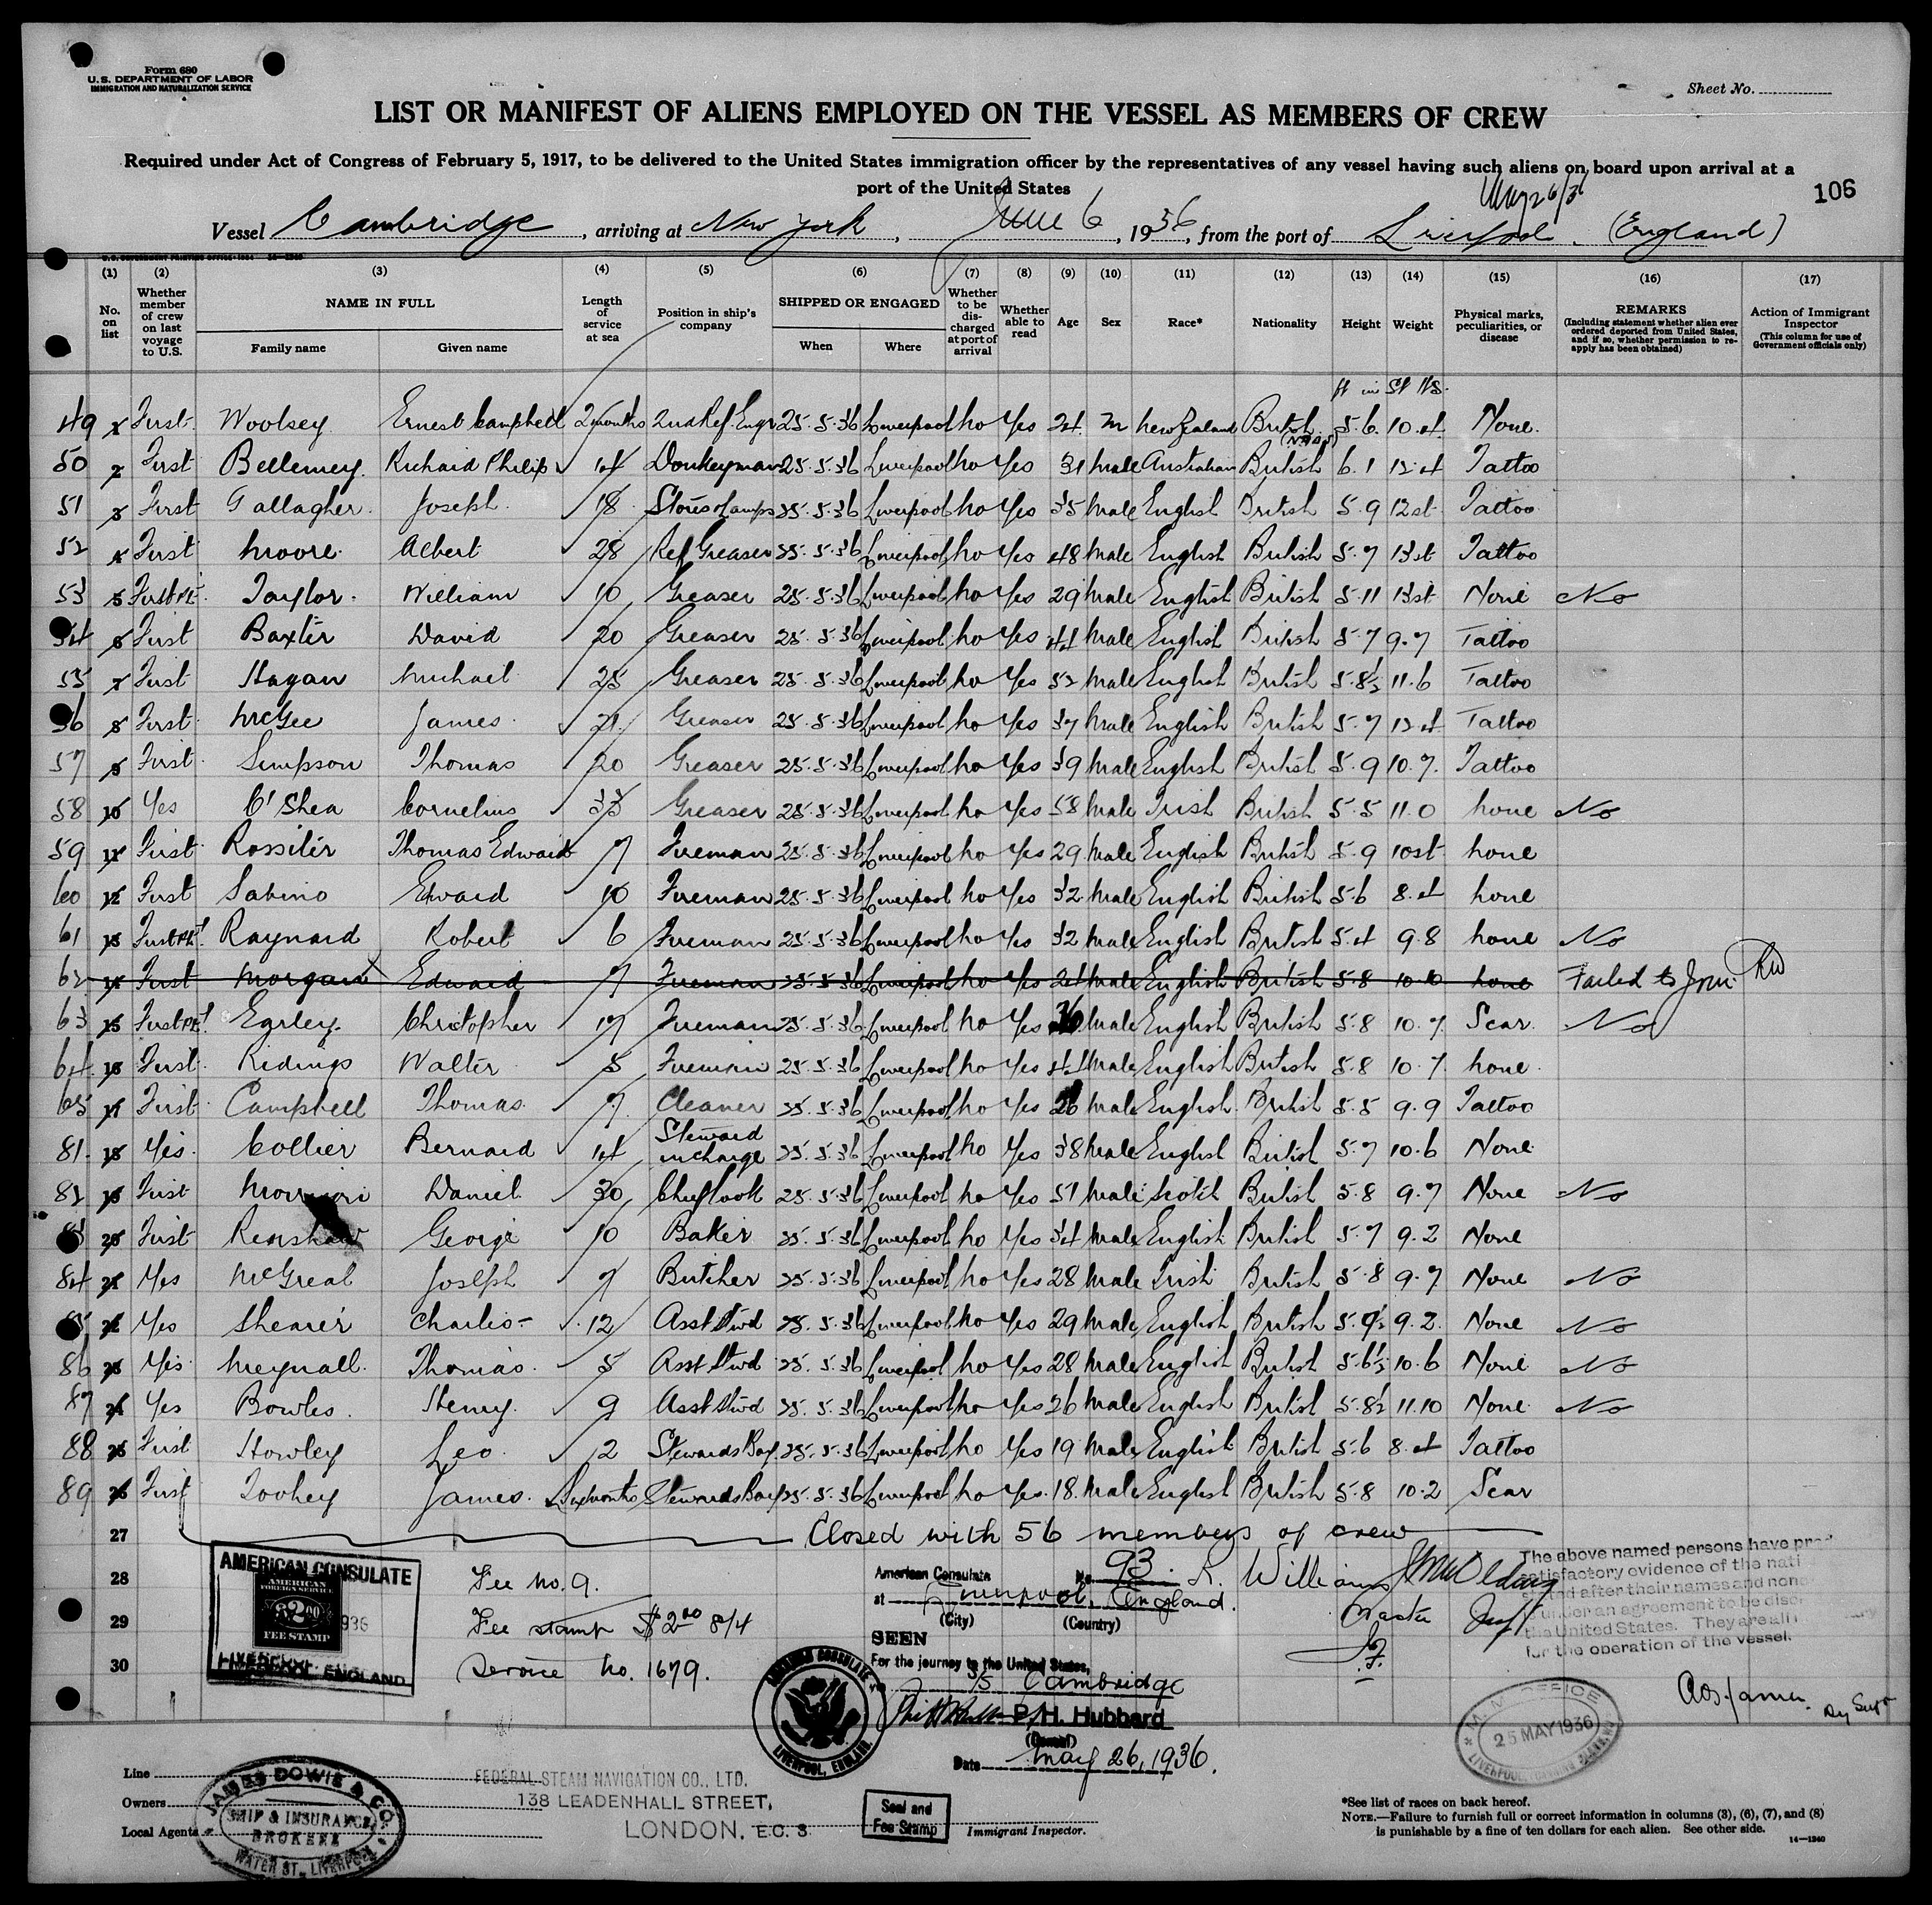 Form 680
U.S. DEPARTMENT OF LABOR
IMMIGRATION AND NATURALIZATION SERVICE
Sheet No.
LIST OR MANIFEST OF ALIENS EMPLOYED ON THE VESSEL AS MEMBERS OF CREW
Required under Act of Congress of February 5, 1917, to be delivered to the United States immigration officer by the representatives of any vessel having such aliens on board upon arrival at a
port of the United States
106
Vessel Cambridge, arriving at New York, June 6, 1936, from the port of Liverpool. (England)
(1) (2) (3) (4) (5) (6) (7) (8) (9) (10) (11) (12) (13) (14) (15) (16) (17)
No. on list
Whether member of crew on last voyage to U.S.
NAME IN FULL
Family name
Given name
Length of service at sea
Position in ship's company
SHIPPED OR ENGAGED
When
Where
Whether to be discharged at port of arrival
Whether able to read
Age
Sex
Race*
Nationality
Height
Weight
Physical marks, peculiarities, or disease
REMARKS
(Including statement whether alien ever ordered deported from United States, and if so, whether permission to reapply has been obtained)
Action of Immigrant Inspector
(This column for use of Government officials only)
ft in St lbs.
49 First Woolsey Ernest Campbell 2 months 2nd Ref. Engr 25.5.36 Liverpool No Yes 24 M New Zealand British 5.6 10.4 None
50 First Bellemey Richard Philip 14 Donkeyman 25.5.36 Liverpool No Yes 31 Male Australian British 6.1 12.4 Tattoo
51 First Gallagher Joseph 18 Stores & Lamps 25.5.36 Liverpool No Yes 35 Male English British 5.9 12st Tattoo
52 First Moore Albert 28 Ref Greaser 25.5.36 Liverpool No Yes 48 Male English British 5.7 13st Tattoo
53 First Taylor William 10 Greaser 25.5.36 Liverpool No Yes 29 Male English British 5.11 13st None No
54 First Baxter David 20 Greaser 25.5.36 Liverpool No Yes 44 Male English British 5.7 9.7 Tattoo
55 First Hagan Michael 25 Greaser 25.5.36 Liverpool No Yes 52 Male English British 5.8½ 11.6 Tattoo
56 First McGee James 21 Greaser 25.5.36 Liverpool No Yes 37 Male English British 5.7 12.4 Tattoo
57 First Simpson Thomas 20 Greaser 25.5.36 Liverpool No Yes 39 Male English British 5.9 10.7 Tattoo
58 Yes O'Shea Cornelius 33 Greaser 25.5.36 Liverpool No Yes 58 Male Irish British 5.5 11.0 None No
59 First Rossiter Thomas Edward 7 Fireman 25.5.36 Liverpool No Yes 29 Male English British 5.9 10st None
60 First Sabino Edward 10 Fireman 25.5.36 Liverpool No Yes 32 Male English British 5.6 8.4 None
61 First Raynard Robert 6 Fireman 25.5.36 Liverpool No Yes 32 Male English British 5.4 9.8 None No
62 First Morgan Edward 7 Fireman 25.5.36 Liverpool No Yes 24 Male English British 5.8 10.10 None Failed to Join
63 First Egrley Christopher 17 Fireman 25.5.36 Liverpool No Yes 36 Male English British 5.8 10.7 Scar No
64 First Ridings Walter 5 Fireman 25.5.36 Liverpool No Yes Male English British 5.8 10.7 None
65 First Campbell Thomas 7 Cleaner 25.5.36 Liverpool No Yes 26 Male English British 5.5 9.9 Tattoo
81 Yes Collier Bernard 14 Steward in charge 25.5.36 Liverpool No Yes 38 Male English British 5.7 10.6 None
82 First Daniel 30 Chief Cook 25.5.36 Liverpool No Yes 51 Male Scotch British 5.8 9.7 None No
83 First Renshaw George 10 Baker 25.5.36 Liverpool No Yes 34 Male English British 5.7 9.2 None
84 Yes McGreal Joseph 7 Butcher 25.5.36 Liverpool No Yes 28 Male Irish British 5.8 9.7 None No
85 Yes Shearer Charles 12 Asst Stwd 25.5.36 Liverpool No Yes 29 Male English British 9.2 None No
86 Yes Meynall Thomas 5 Asst Stwd 25.5.36 Liverpool No Yes 28 Male English British 5.6½ 10.6 None No
87 Yes Bowles Henry 9 Asst Stwd 25.5.36 Liverpool No Yes 26 Male English British 5.8½ 11.10 None No
88 First Howley Leo 2 Stewards Boy 25.5.36 Liverpool No Yes 19 Male English British 5.6 8.4 Tattoo
89 First Toohey James Six months Stewards Boy 25.5.36 Liverpool No Yes 18 Male English British 5.8 10.2 Scar
27 Closed with 56 members of crew
28
29
30
AMERICAN CONSULATE
AMERICAN FOREIGN SERVICE
$2.00
FEE STAMP
LIVERPOOL, ENGLAND
Fee No. 9.
Fee stamp $2.00 8/4
Service No. 1679.
American Consulate No. 93
at Liverpool, England.
(City) (Country)
SEEN
For the journey to the United States,
S/S Cambridge
P. H. Hubbard
(Consul)
Date May 26, 1936.
AMERICAN CONSULATE LIVERPOOL, ENGLAND
R. Williams
Master
The above named persons have
satisfactory evidence of the
stated after their names and none
under an agreement to be
the United States. They are all
for the operation of the vessel.
25 MAY 1936
Line
Owners
Local Agents
JAMES DOWIE & CO.
SHIP & INSURANCE
BROKERS
WATER ST., LIVERPOOL
FEDERAL STEAM NAVIGATION CO., LTD.
138 LEADENHALL STREET,
LONDON, E.C. 3
Seal and
Fee Stamp
Immigrant Inspector.
*See list of races on back hereof.
NOTE.—Failure to furnish full or correct information in columns (3), (6), (7), and (8)
is punishable by a fine of ten dollars for each alien. See other side.
14—1240